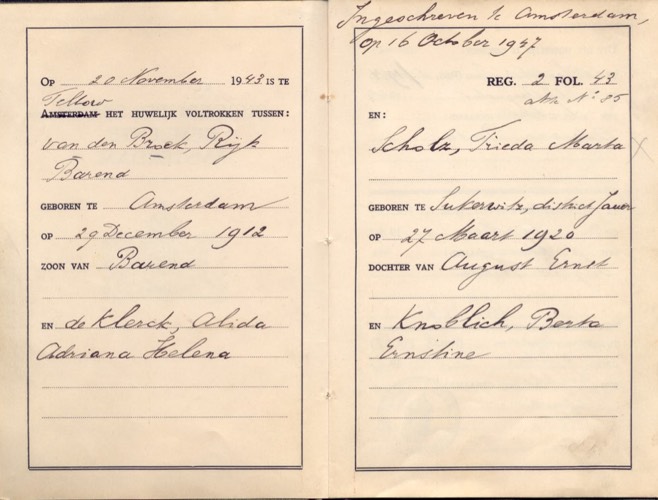 OP 20 November 1943 IS TE
Teltow
AMSTERDAM HET HUWELIJK VOLTROKKEN TUSSEN:
van den Broek, Rijk
Barend
GEBOREN TE Amsterdam
OP 29 December 1912
ZOON VAN Barend
EN de Klerck, Alida
Adriana Helena
Ingeschreven te Amsterdam,
op 16 October 1947
REG. 2 FOL. 43
akte No 85
EN:
Scholz, Frieda Marta
GEBOREN TE district Jauer
OP 27 Maart 1920
DOCHTER VAN August Ernst
EN Knoblich, Berta
Ernstine